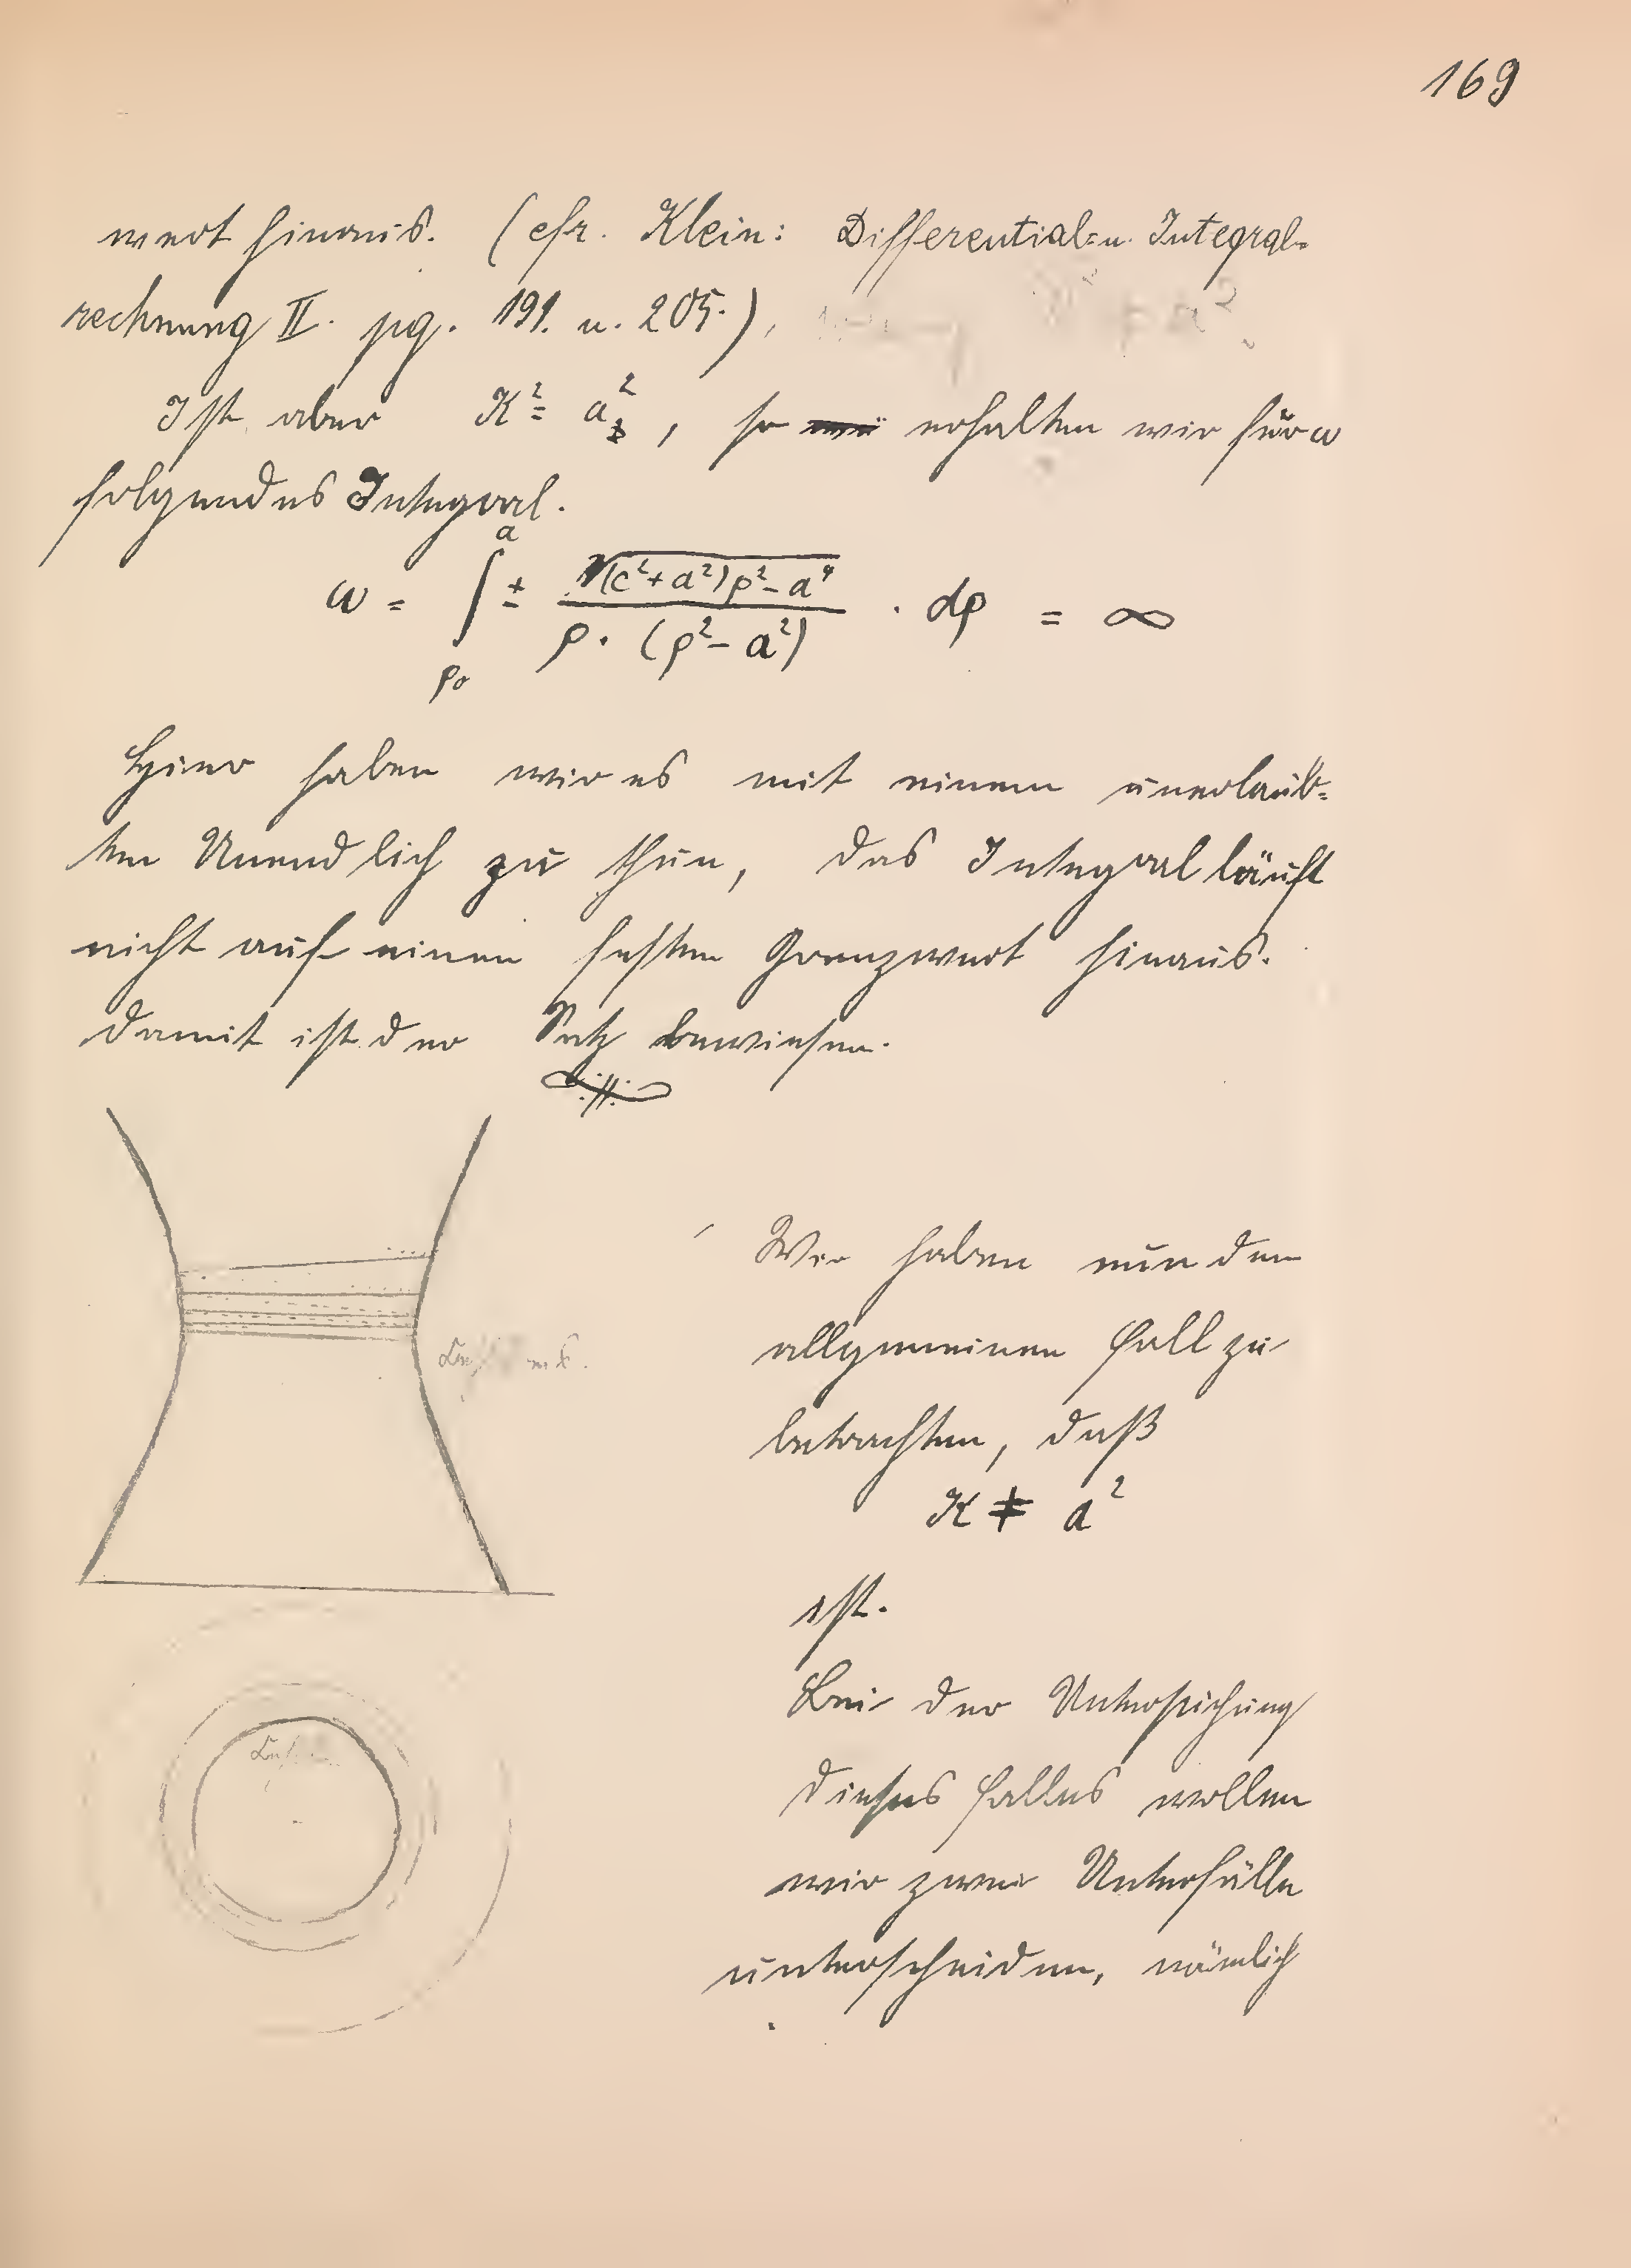 169
wert hinaus. (cfr. Klein: Differential= u. Integral=
rechnung II. pg. 191. u. 205.),
Ist aber K² = a², so erhalten wir für ω
folgendes Integral.
ω = ∫_{ρ₀}^{a} ± √((c²+a²)ρ²-a⁴) / (ρ·(ρ²-a²)) · dρ = ∞
Hier haben wir es mit einem unerlaub=
ten Unendlich zu thun, das Integral läuft
nicht auf einen festen Grenzwert hinaus.
Damit ist der Satz bewiesen.
Wir haben nun den
allgemeinen Fall zu
betrachten, daß
K ≠ a²
ist.
Bei der Untersuchung
dieses Falles wollen
wir zwei Unterfälle
unterscheiden, nämlich